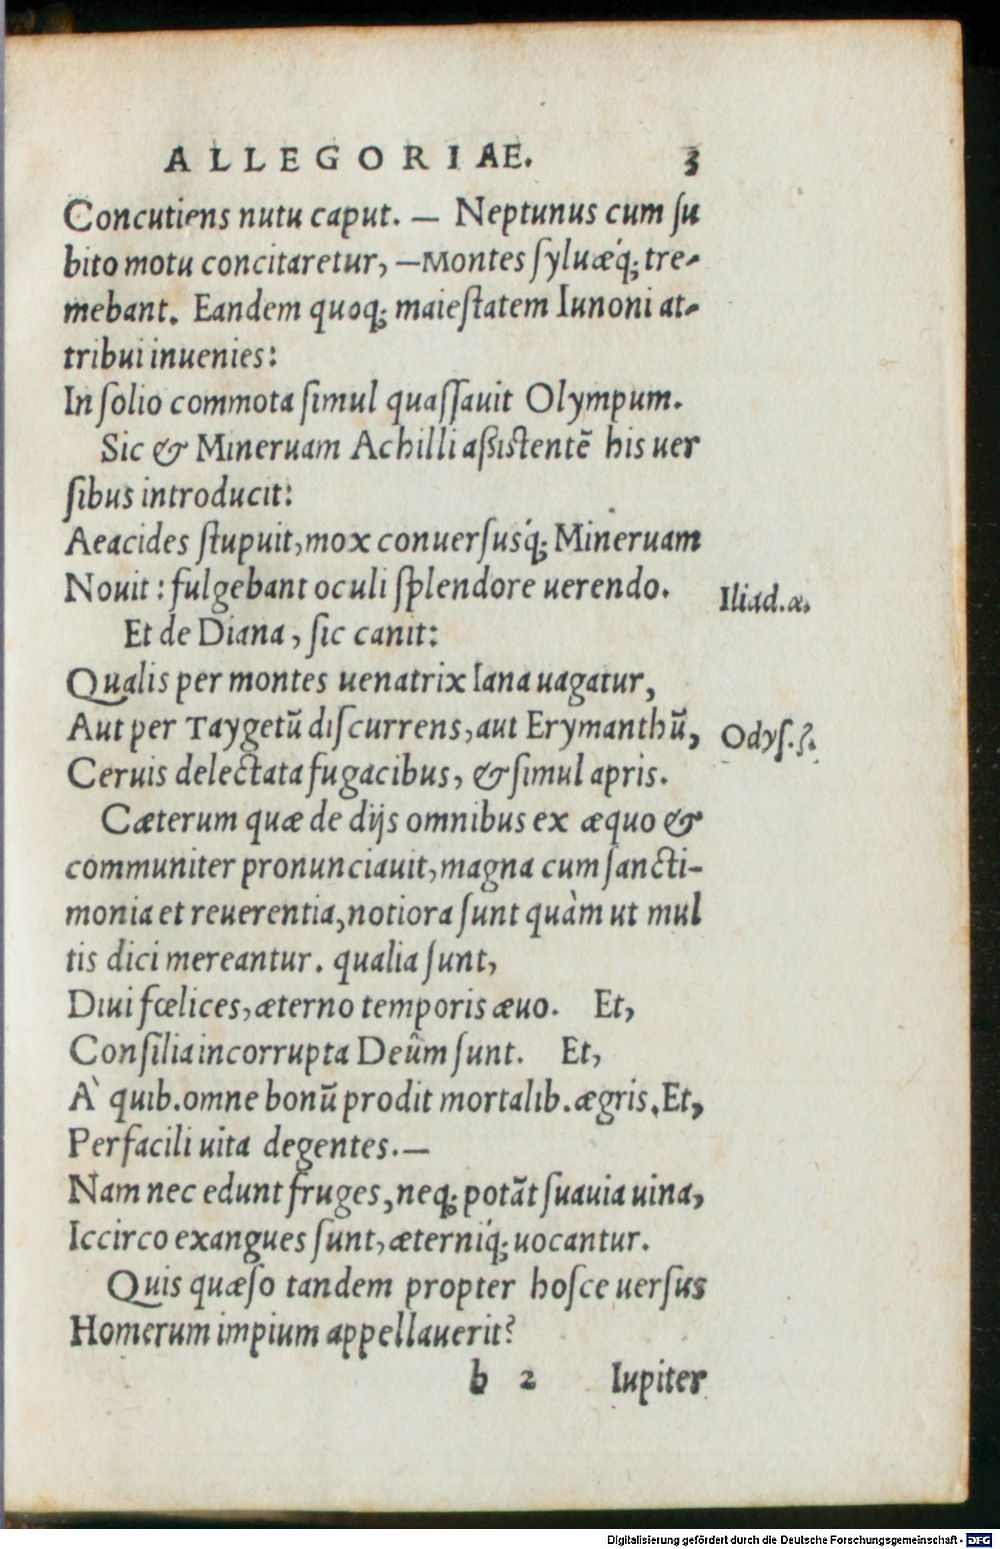 ALLEGORIAE. 3
Concutiens nutu caput. — Neptunus cum ſu
bito motu concitaretur, —Montes ſyluæq́; tre-
mebant. Eandem quoq; maieſtatem Iunoni at-
tribui inuenies:
In ſolio commota ſimul quaſſauit Olympum.
Sic & Mineruam Achilli aßiſtentẽ his uer
ſibus introducit:
Aeacides ſtupuit, mox conuerſusq́; Mineruam
Nouit : fulgebant oculi ſplendore uerendo.
Iliad.α.
Et de Diana, ſic canit:
Qualis per montes uenatrix Iana uagatur,
Aut per Taygetũ diſcurrens, aut Erymanthũ,
Odyſ.ζ.
Ceruis delectata fugacibus, & ſimul apris.
Cæterum quæ de dijs omnibus ex æquo &
communiter pronunciauit, magna cum ſancti-
monia et reuerentia, notiora ſunt quàm ut mul
tis dici mereantur. qualia ſunt,
Diui fœlices, æterno temporis æuo. Et,
Conſilia incorrupta Deûm ſunt. Et,
À quib. omne bonũ prodit mortalib. ægris. Et,
Per facili uita degentes.—
Nam nec edunt fruges, neq; potãt ſuauia uina,
Iccirco exangues ſunt, æterniq́; uocantur.
Quis quæſo tandem propter hoſce uerſus
Homerum impium appellauerit?
b 2 Iupiter
Digitalisierung gefördert durch die Deutsche Forschungsgemeinschaft - DFG